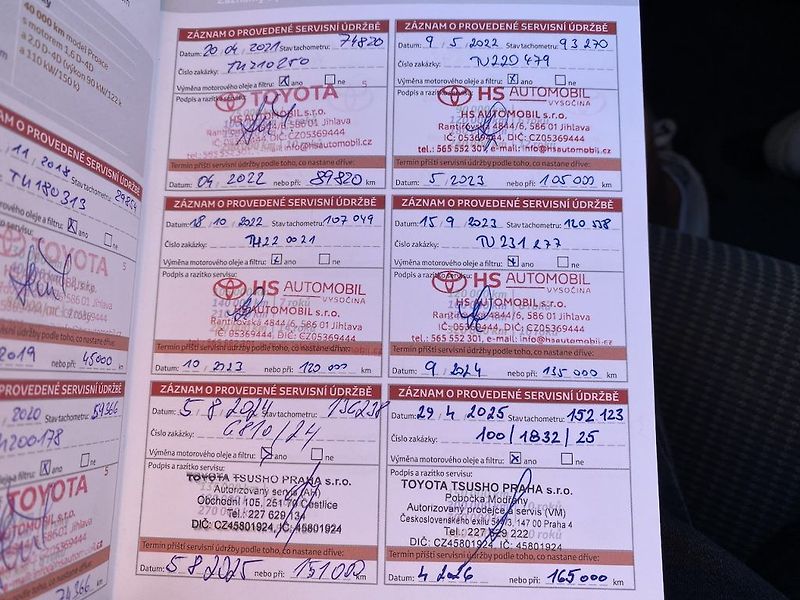 40 000 km model Proace
s motorem 1,6 D-4D
a 2,0 D-4D (výkon 90 kW/122 k
a 110 kW/150 k)
ZÁZNAM O PROVEDENÉ SERVISNÍ ÚDRŽBĚ
11 / 2018 Stav tachometru:
TH180313
oleje a filtru: X ano ne
TOYOTA
AUTOMOBIL s.r.o.
Termín příští servisní údržby podle toho, co nastane dříve:
2019 nebo při: 45000 km
PROVEDENÉ SERVISNÍ ÚDRŽBĚ
2020 Stav tachometru: 59366
H200178
oleje a filtru: X ano ne
TOYOTA
AUTOMOBIL s.r.o.
74366 km
ZÁZNAM O PROVEDENÉ SERVISNÍ ÚDRŽBĚ
Datum: 20 / 04 / 2021 Stav tachometru: 74820
Číslo zakázky: TH210250
Výměna motorového oleje a filtru: X ano ne
Podpis a razítko servisu:
TOYOTA 5
HS AUTOMOBIL s.r.o.
Rantířovská 4844/6, 586 01 Jihlava
IČ: 05369444, DIČ: CZ05369444
tel.: 565 552 301, e-mail: info@hsautomobil.cz
Termín příští servisní údržby podle toho, co nastane dříve:
Datum: 04 / 2022 nebo při: 89820 km
ZÁZNAM O PROVEDENÉ SERVISNÍ ÚDRŽBĚ
Datum: 9 / 5 / 2022 Stav tachometru: 93 270
Číslo zakázky: TU220479
Výměna motorového oleje a filtru: X ano ne
Podpis a razítko servisu:
HS AUTOMOBIL
VYSOČINA
HS AUTOMOBIL s.r.o.
Rantířovská 4844/6, 586 01 Jihlava
IČ: 05369444, DIČ: CZ05369444
tel.: 565 552 301, e-mail: info@hsautomobil.cz
Termín příští servisní údržby podle toho, co nastane dříve:
Datum: 5 / 2023 nebo při: 105000 km
ZÁZNAM O PROVEDENÉ SERVISNÍ ÚDRŽBĚ
Datum: 18 / 10 / 2022 Stav tachometru: 107 049
Číslo zakázky: TH22 0021
Výměna motorového oleje a filtru: X ano ne
Podpis a razítko servisu:
HS AUTOMOBIL
VYSOČINA
HS AUTOMOBIL s.r.o.
Rantířovská 4844/6, 586 01 Jihlava
IČ: 05369444, DIČ: CZ05369444
Termín příští servisní údržby podle toho, co nastane dříve:
Datum: 10 / 2023 nebo při: 120 000 km
ZÁZNAM O PROVEDENÉ SERVISNÍ ÚDRŽBĚ
Datum: 15 / 9 / 2023 Stav tachometru: 120 538
Číslo zakázky: TU 231 277
Výměna motorového oleje a filtru: X ano ne
Podpis a razítko servisu:
HS AUTOMOBIL
VYSOČINA
HS AUTOMOBIL s.r.o.
Rantířovská 4844/6, 586 01 Jihlava
IČ: 05369444, DIČ: CZ05369444
tel.: 565 552 301, e-mail: info@hsautomobil.cz
Termín příští servisní údržby podle toho, co nastane dříve:
Datum: 9 / 2024 nebo při: 135 000 km
ZÁZNAM O PROVEDENÉ SERVISNÍ ÚDRŽBĚ
Datum: 5 / 8 / 2024 Stav tachometru: 136238
Číslo zakázky: C810/24
Výměna motorového oleje a filtru: X ano ne
Podpis a razítko servisu:
TOYOTA TSUSHO PRAHA s.r.o.
Autorizovaný servis (AH)
Obchodní 105, 251 70 Čestlice
Tel.: 227 629 134
DIČ: CZ45801924, IČ: 45801924
Termín příští servisní údržby podle toho, co nastane dříve:
Datum: 5 8 2025 nebo při: 151000 km
ZÁZNAM O PROVEDENÉ SERVISNÍ ÚDRŽBĚ
Datum: 29 / 4 / 2025 Stav tachometru: 152 123
Číslo zakázky: 100/1832/25
Výměna motorového oleje a filtru: X ano ne
Podpis a razítko servisu:
TOYOTA TSUSHO PRAHA s.r.o.
Pobočka Modřany
Autorizovaný prodejce a servis (VM)
Československého exilu 549/3, 147 00 Praha 4
Tel.: 227 629 222
DIČ: CZ45801924, IČ: 45801924
Termín příští servisní údržby podle toho, co nastane dříve:
Datum: 4 2026 nebo při: 165 000 km